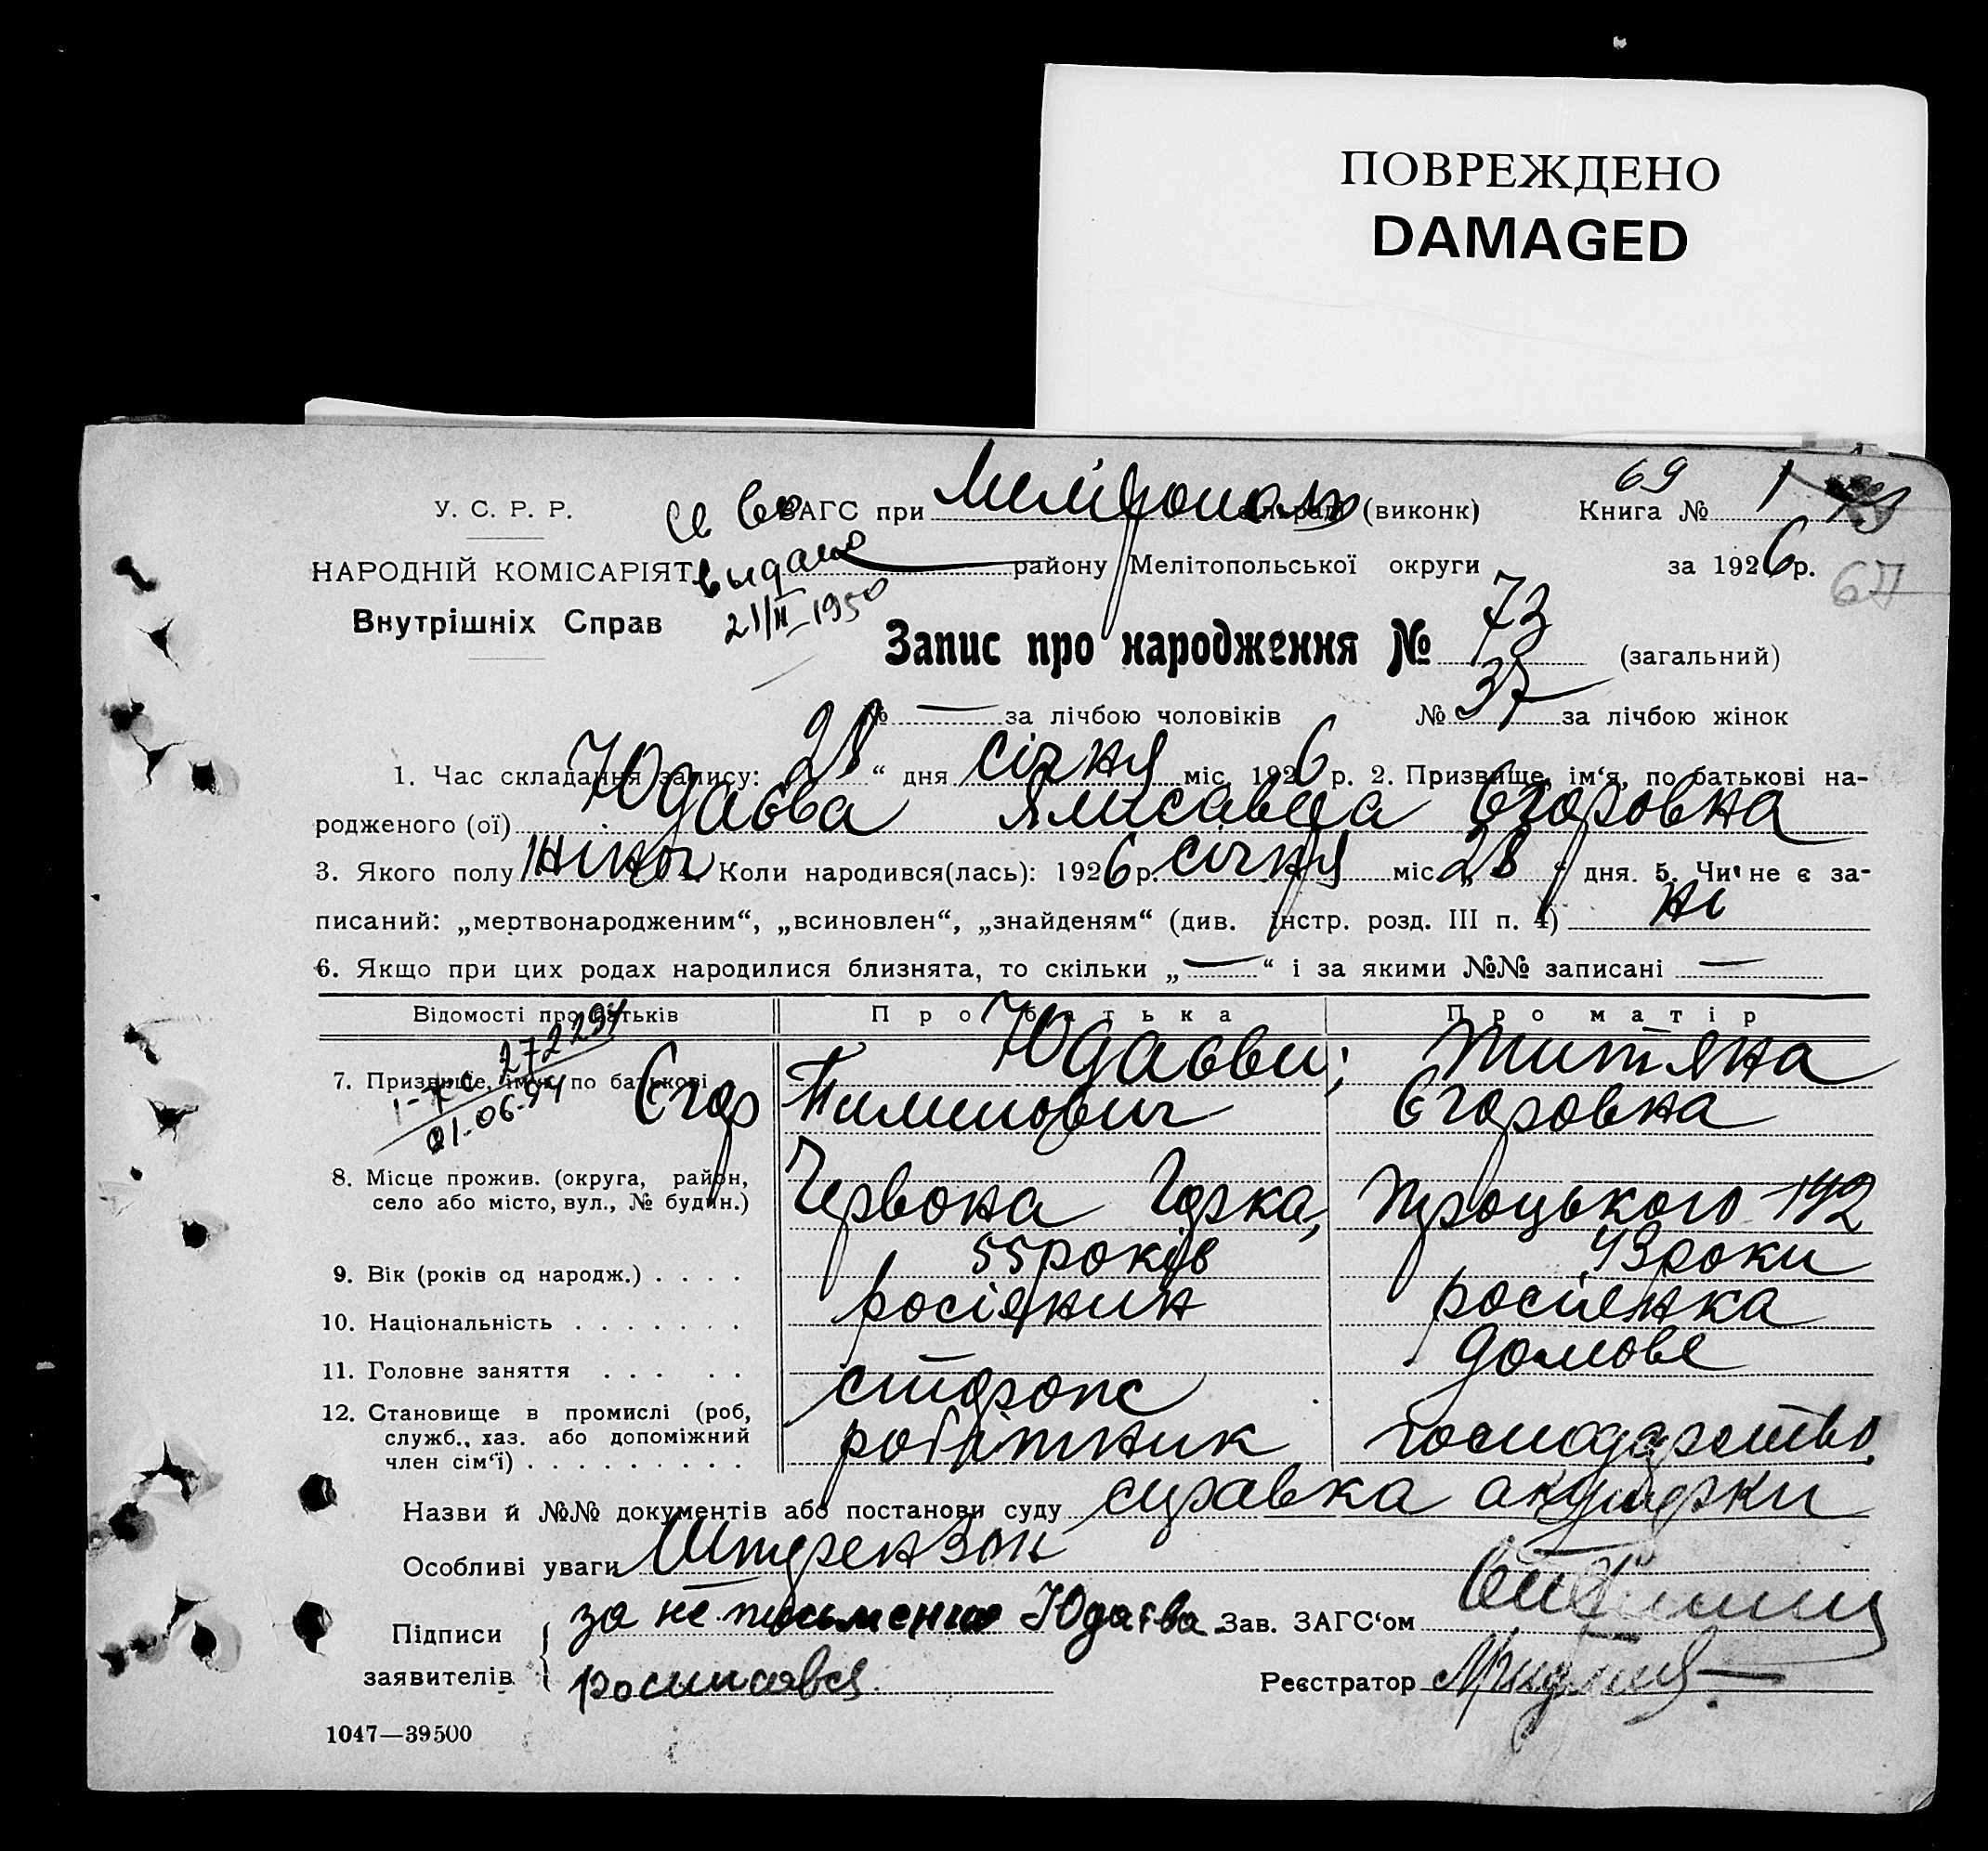 ПОВРЕЖДЕНО
DAMAGED
69
У. С. Р. Р. св во ЗАГС при Мелітополь (виконк) Книга № 1
НАРОДНІЙ КОМІСАРІЯТ выдано району Мелітопольської округи за 1926 р. 67
Внутрішніх Справ 21/II-1950
Запис про народження № 73 (загальний)
№ — за лічбою чоловіків № 37 за лічбою жінок
1. Час складання запису: 28 “ дня січня міс. 1926 р. 2. Призвище, ім‘я, по батькові на-
родженого (ої) Юдаєва Ялисавета Єгоровна
3. Якого полу жіноч 4. Коли народився(лась): 1926 р. січня міс „28 “ дня. 5. Чи не є за-
писаний: „мертвонародженим“, „всиновлен“, „знайденям“ (див. інстр. розд. III п. 4) ні
6. Якщо при цих родах народилися близнята, то скільки „—“ і за якими №№ записані —
Відомості про батьків Про батька Про матір
272297
1-
01-06-94
7. Призвище, ім‘я, по батькові Юдаєви; Титяна
Єгор Пименович Єгоровна
8. Місце прожив. (округа, район,
село або місто, вул., № будин.) Червона Горка, Троцького 142
9. Вік (років од народж.) . . . . 55 років 43 роки
10. Національність . . . . . . . росіянин росіянка
11. Головне заняття . . . . . домове
сторож
12. Становище в промислі (роб,
служб., хаз. або допоміжний
член сім‘ї) . . . . . . . . . робітник господарство
Назви й №№ документів або постанови суду справка акушерки
Особливі уваги Штерензон
Підписи
заявителів
за не письменно Юдаєва
росписався
Зав. ЗАГС‘ом
Реєстратор
1047—39500